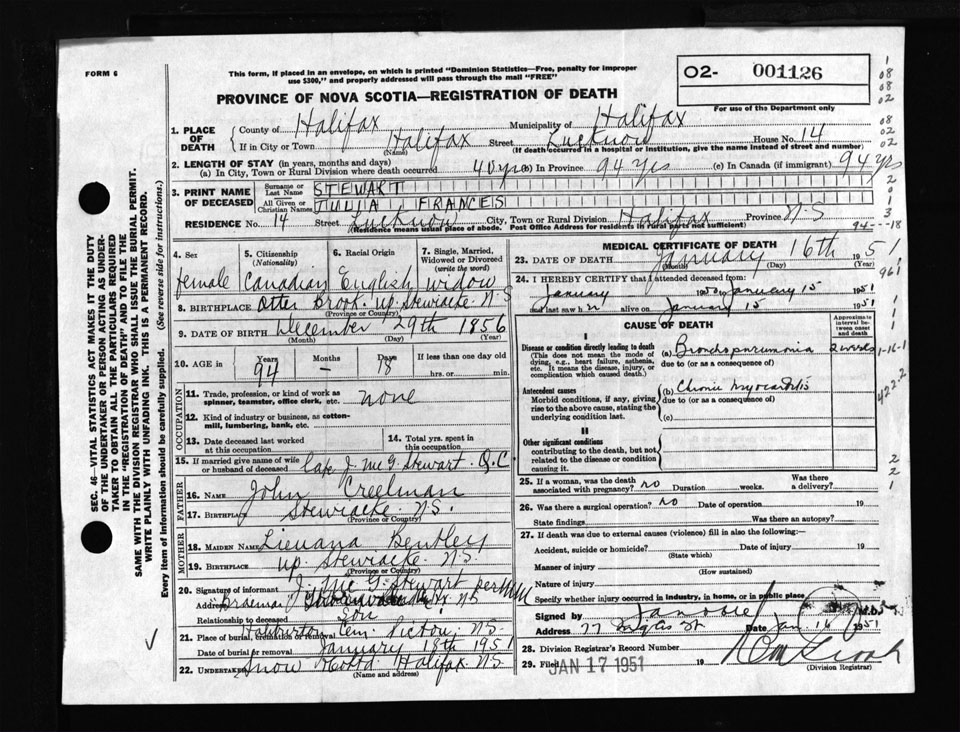 FORM 6
This form, if placed in an envelope, on which is printed "Dominion Statistics—Free, penalty for improper
use $300," and properly addressed will pass through the mail "FREE"
PROVINCE OF NOVA SCOTIA—REGISTRATION OF DEATH
02- 001126
For use of the Department only
1. PLACE OF DEATH
County of Halifax Municipality of Halifax
If in City or Town Halifax Street Lucknow House No. 14
(Name) (If death occurred in a hospital or institution, give the name instead of street and number)
2. LENGTH OF STAY (in years, months and days)
(a) In City, Town or Rural Division where death occurred 40 yrs (b) In Province 94 yrs (c) In Canada (if immigrant) 94 yrs
3. PRINT NAME OF DECEASED
Surname or Last Name STEWART
All Given or Christian Names JULIA FRANCES
RESIDENCE No. 14 Street Lucknow City, Town or Rural Division Halifax Province N.S
(Residence means usual place of abode. Post Office Address for residents in rural parts not sufficient)
4. Sex female
5. Citizenship (Nationality) Canadian
6. Racial Origin English
7. Single, Married, Widowed or Divorced (write the word) widow
8. BIRTHPLACE Otter Brook up. Stewiacke N.S
(Province or Country)
9. DATE OF BIRTH December 29th 1856
(Month) (Day) (Year)
10. AGE in Years 94 Months – Days 18 If less than one day old hrs. or min.
OCCUPATION
11. Trade, profession, or kind of work as spinner, teamster, office clerk, etc. none
12. Kind of industry or business, as cotton-mill, lumbering, bank, etc.
13. Date deceased last worked at this occupation
14. Total yrs. spent in this occupation
15. If married give name of wife or husband of deceased J. Mc G. Stewart Q.C.
FATHER
16. NAME John Creelman
17. BIRTHPLACE Stewiacke N.S.
(Province or Country)
MOTHER
18. MAIDEN NAME Bentley
19. BIRTHPLACE up. Stewiacke N.S.
(Province or Country)
20. Signature of informant J. Mc G. Stewart per
Address Braemar N.S
Relationship to deceased Son
21. Place of burial, cremation or removal Haliburton Cem. Pictou N.S.
Date of burial or removal January 18th 1951
22. UNDERTAKER Snow Halifax N.S
(Name and address)
MEDICAL CERTIFICATE OF DEATH
23. DATE OF DEATH January 16th 1951
(Month) (Day) (Year)
24. I HEREBY CERTIFY that I attended deceased from:
January 1950 to January 15 1951
and last saw h alive on January 15 1951
CAUSE OF DEATH
Approximate interval between onset and death
I
Disease or condition directly leading to death
(This does not mean the mode of dying, e.g., heart failure, asthenia, etc. It means the disease, injury, or complication which caused death.)
(a) Bronchopneumonia 2 weeks
due to (or as a consequence of)
Antecedent causes
Morbid conditions, if any, giving rise to the above cause, stating the underlying condition last.
(b) Chronic myocarditis
due to (or as a consequence of)
(c)
II
Other significant conditions contributing to the death, but not related to the disease or condition causing it.
25. If a woman, was the death associated with pregnancy? no Duration weeks. Was there a delivery?
26. Was there a surgical operation? no Date of operation 19
State findings Was there an autopsy?
27. If death was due to external causes (violence) fill in also the following:—
Accident, suicide or homicide? Date of injury 19
(State which)
Manner of injury
(How sustained)
Nature of injury
Specify whether injury occurred in industry, in home, or in public place
Signed by M.D.
Address 77 Inglis St Date Jan 16 1951
28. Division Registrar's Record Number
29. Filed JAN 17 1951 19
(Division Registrar)
SEC. 46—VITAL STATISTICS ACT MAKES IT THE DUTY
OF THE UNDERTAKER OR PERSON ACTING AS UNDER-
TAKER TO OBTAIN ALL THE PARTICULARS REQUIRED
IN THE "REGISTRATION OF DEATH" AND TO FILE THE
SAME WITH THE DIVISION REGISTRAR WHO SHALL ISSUE THE BURIAL PERMIT.
WRITE PLAINLY WITH UNFADING INK. THIS IS A PERMANENT RECORD.
Every item of information should be carefully supplied. (See reverse side for instructions.)
1
08
08
02
08
02
02
2
0
1
3
94---18
961
1-16-1
422.2
2
2
1